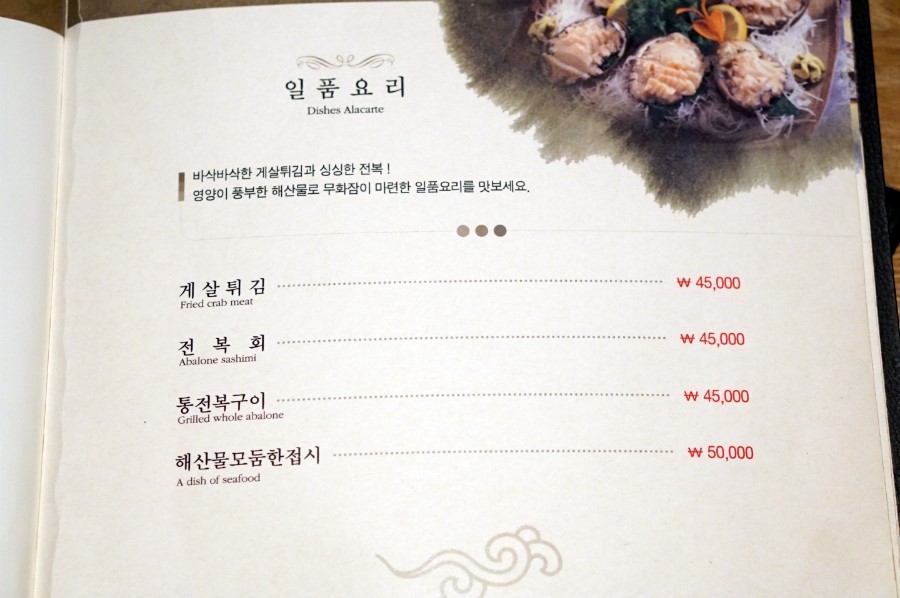 일품요리
Dishes Alacarte
바삭바삭한 게살튀김과 싱싱한 전복 !
영양이 풍부한 해산물로 무화잠이 마련한 일품요리를 맛보세요.
게살튀김 ₩ 45,000
Fried crab meat
전복회 ₩ 45,000
Abalone sashimi
통전복구이 ₩ 45,000
Grilled whole abalone
해산물모둠한접시 ₩ 50,000
A dish of seafood